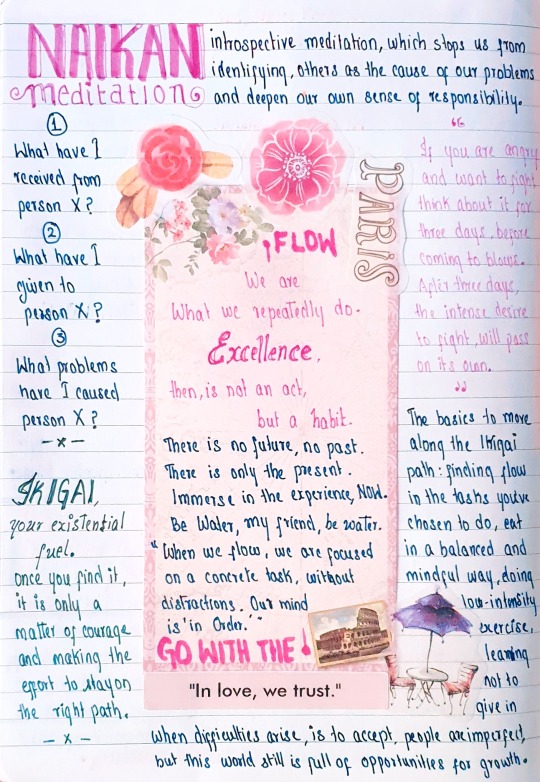 NAIKAN
meditation
introspective meditation, which stops us from
identifying, others as the cause of our problems
and deepen our own sense of responsibility.
1
What have I
received from
person X?
2
What have I
given to
person X?
3
What problems
have I caused
person X?
-x-
IKIGAI,
your existential
fuel.
once you find it,
it is only a
matter of courage
and making the
effort to stay on
the right path.
-x-
PARIS
FLOW
We are
What we repeatedly do.
Excellence,
then, is not an act,
but a habit.
There is no future, no past.
There is only the present.
Immerse in the experience, NOW.
Be Water, my friend, be water.
"When we flow, we are focused
on a concrete task, without
distractions. Our mind
is 'in Order.'"
GO WITH THE
"In love, we trust."
"
If you are angry
and want to fight
think about it for
three days, before
coming to blows.
After three days,
the intense desire
to fight, will pass
on its own.
"
The basics to move
along the Ikigai
path: finding flow
in the tasks you've
chosen to do, eat
in a balanced and
mindful way, doing
low-intensity
exercise,
learning
not to
give in
when difficulties arise, is to accept, people are imperfect,
but this world still is full of opportunities for growth.